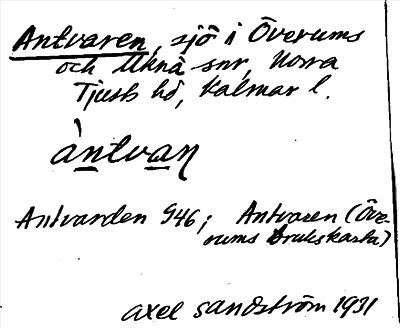 Antvaren, sjö i Överums
och Uknà snr, Norra
Tjusts hd, Kalmar l.
àntvan
Antvarden 946; Antvaren (Öve-
rums brukskarta)
axel sandström 1931